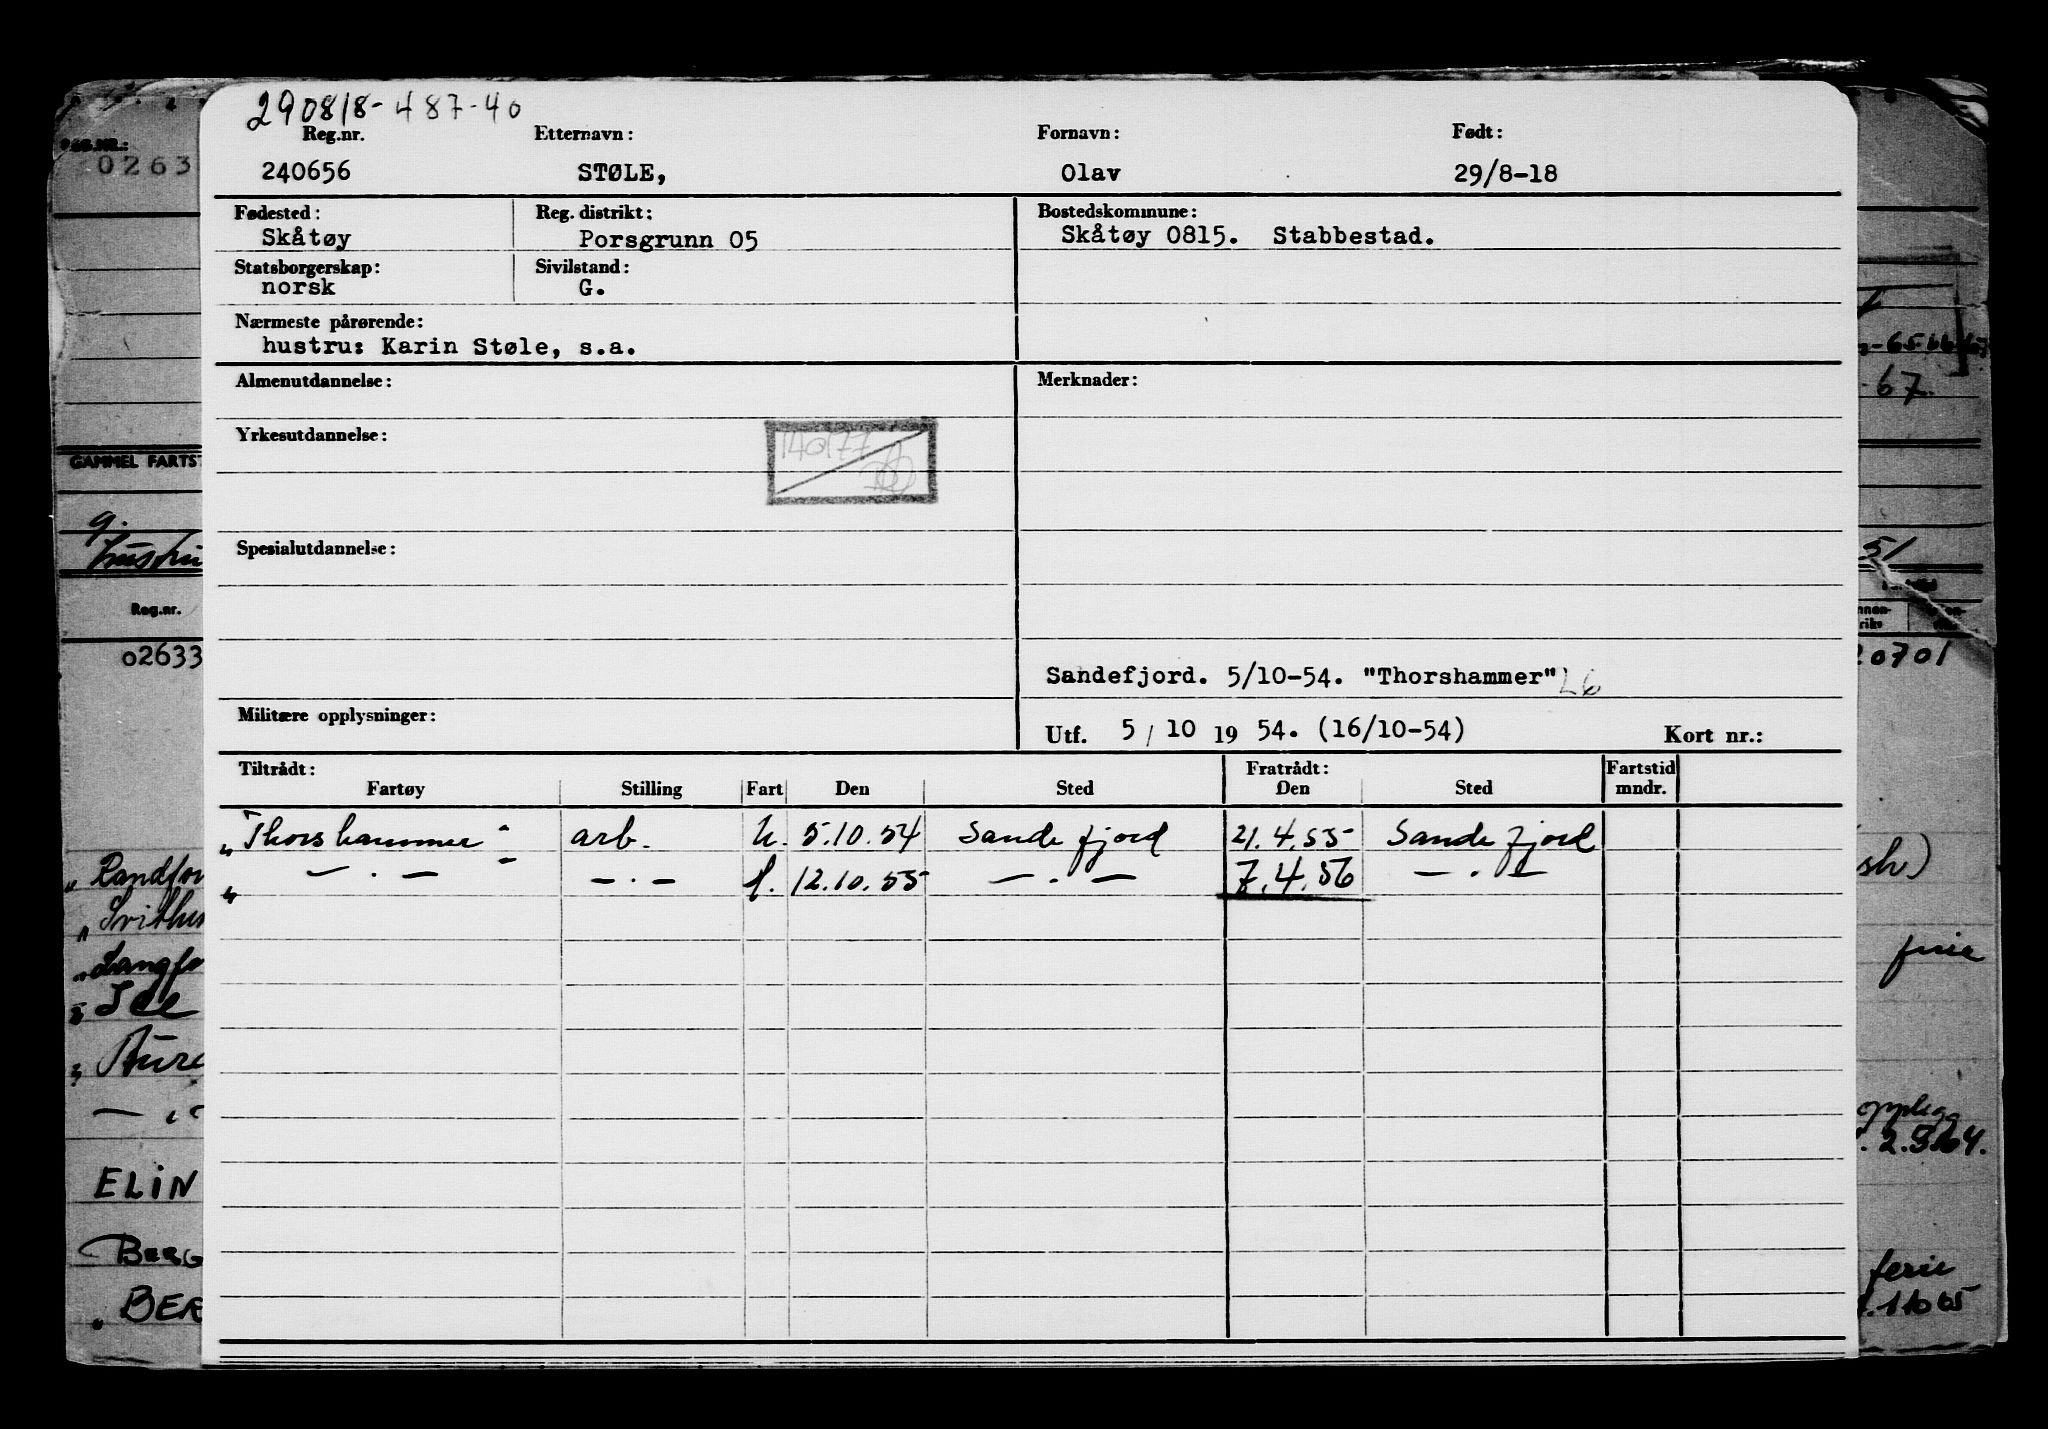 290818-487-40
Reg.nr. Etternavn: Fornavn: Født:
240656 STØLE, Olav 29/8-18
Fødested: Reg. distrikt: Bostedskommune:
Skåtøy Porsgrunn 05 Skåtøy 0815. Stabbestad.
Statsborgerskap: Sivilstand:
norsk G.
Nærmeste pårørende:
hustru: Karin Støle, s.a.
Almenutdannelse: Merknader:
Yrkesutdannelse:
140177
Spesialutdannelse:
Sandefjord. 5/10-54. "Thorshammer"
Militære opplysninger:
Utf. 5 / 10 19 54. (16/10-54) Kort nr.:
Tiltrådt: Fratrådt: Fartstid
Fartøy Stilling Fart Den Sted Den Sted mndr.
"Thorshammer" arb. h. 5.10.54 Sandefjord 21.4.55 Sandefjord
" — . — " — . — f. 12.10.55 — . — 7.4.56 — . —
0263
GAMMEL FARTS
g.
hustru
Reg.nr.
02633
"Randfor
"Svithun
"Langfo
ELIN
BERG
"BER
67.
51
20701
ferie
opplegg
2.9.64.
ferie